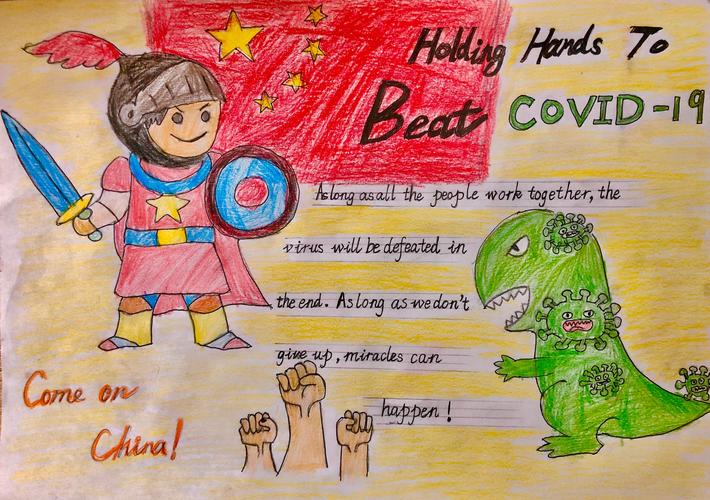 Holding Hands To
Beat COVID-19
As long as all the people work together, the
virus will be defeated in
the end. As long as we don't
give up, miracles can
happen!
Come on
China!